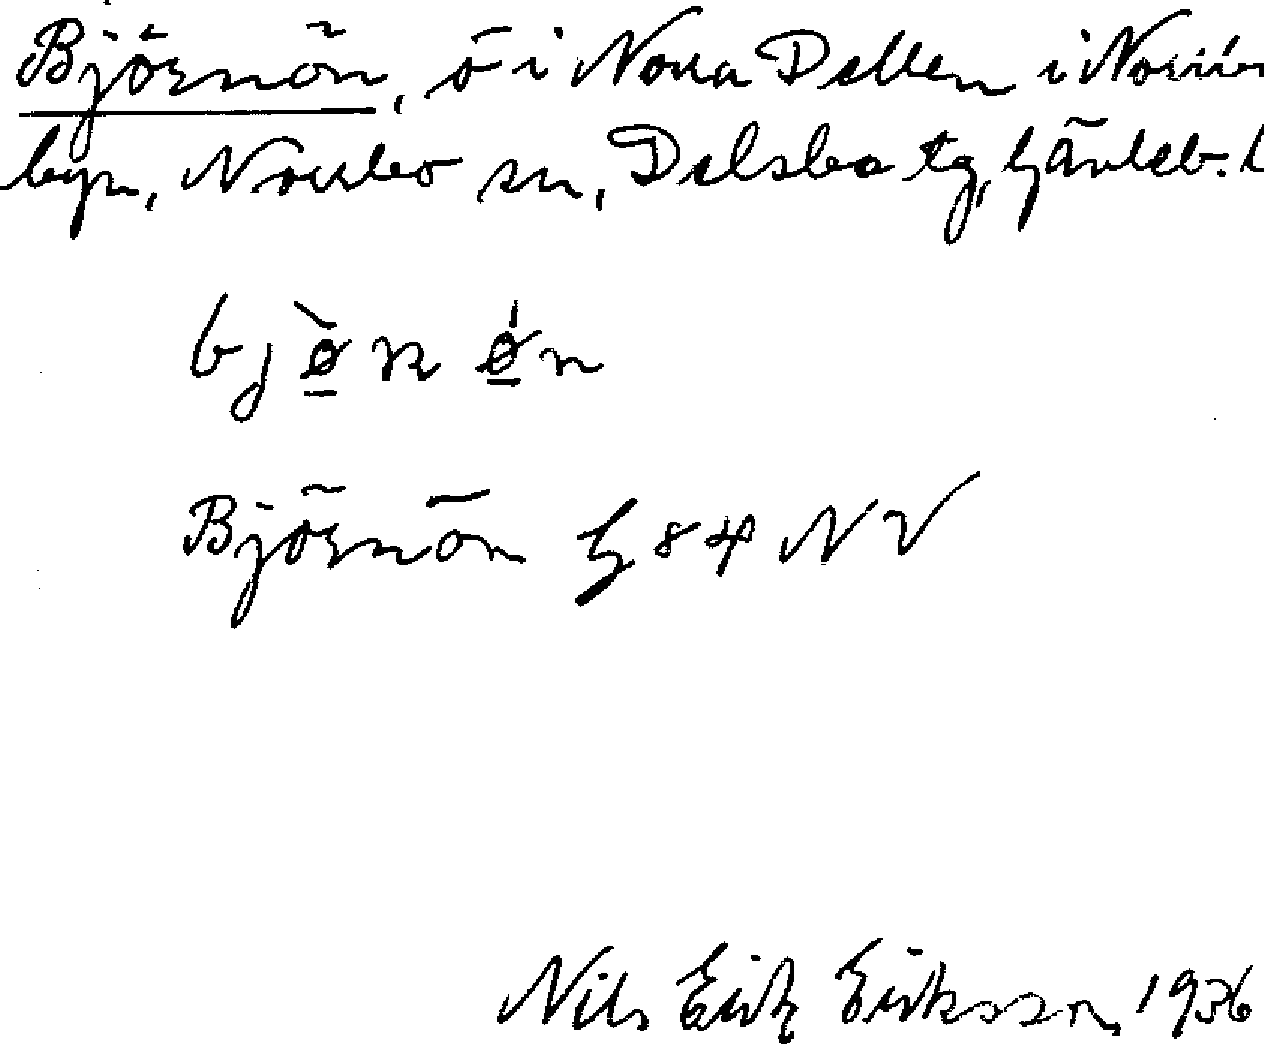 Björnön, ö i Norra Dellen i Norrär
byn, Norrbo sn, Delsbo tg, Gävleb. l
bjø̱̀n ǿ̱n
Björnön G 84 NV
Nils Erik Eriksson, 1936